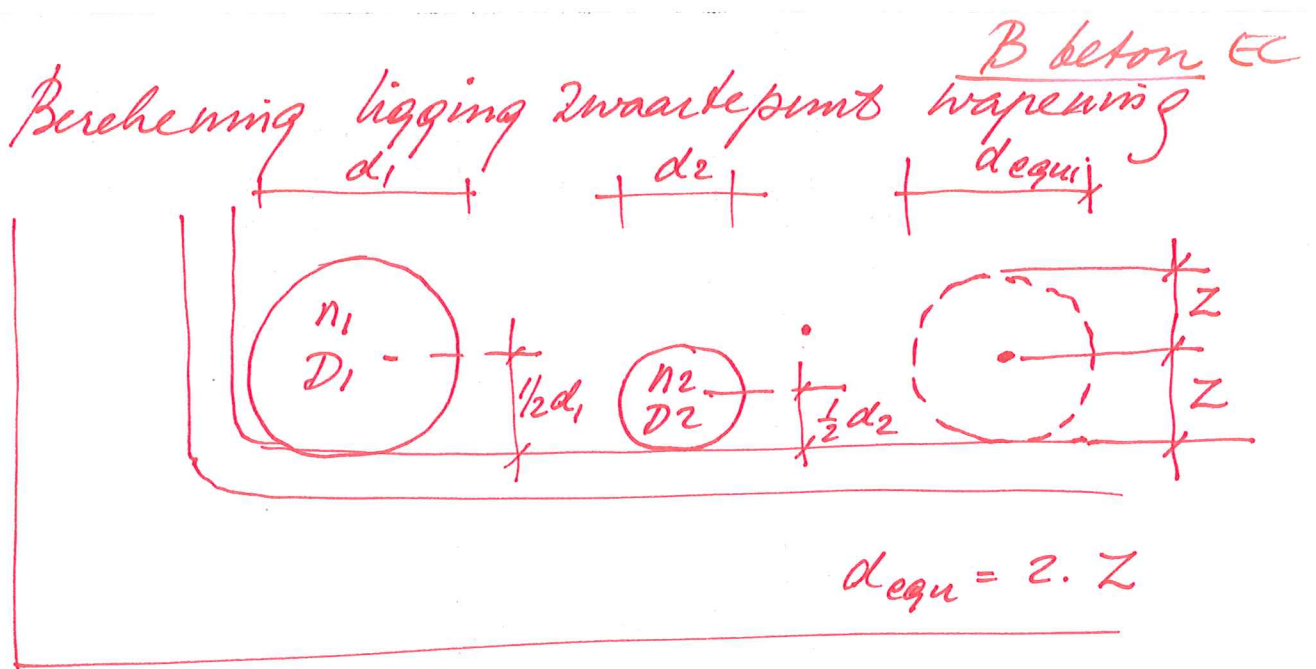 B beton EC
Berekening ligging zwaartepunt wapening
d1 d2 dequi
n1
D1
1/2 d1
n2
D2
1/2 d2
Z
Z
dequ = 2. Z